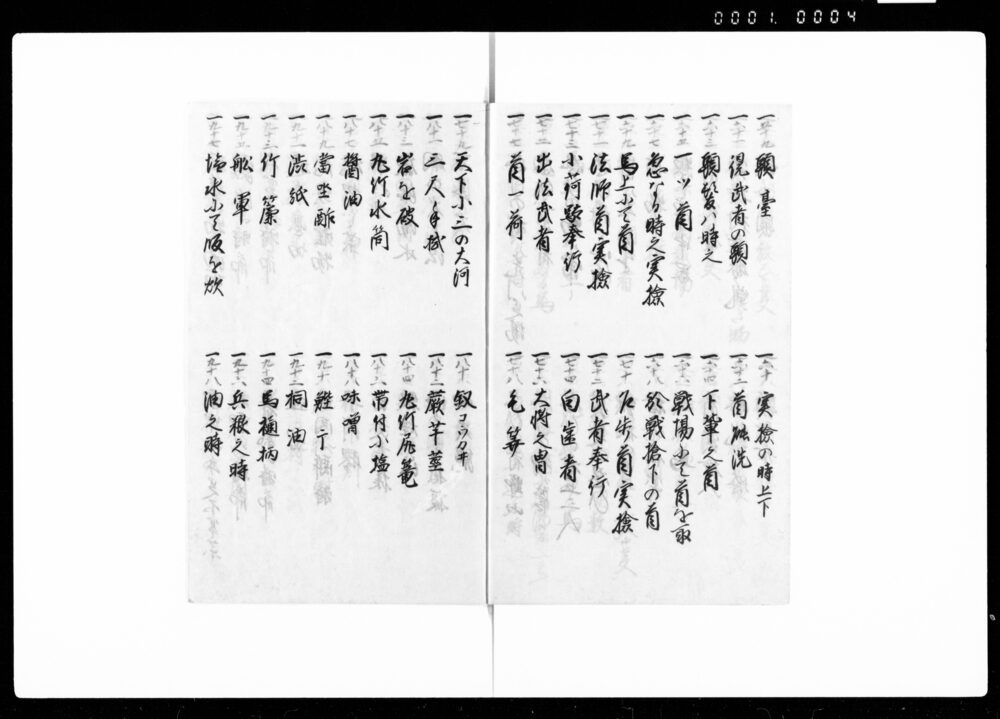 0001. 0004
一 五十九 頸臺
一 六十 実撿の時上下
一 六十一 武者の頸
一 六十二 首 洗
一 六十三 頸髪ハ時之
一 六十四 下輩之首
一 六十五 一ツ首
一 六十六 戦場ニて首を取
一 六十七 急なる時之実撿
一 六十八 於戦捨下の首
一 六十九 馬上ニて首
一 七十 首実撿
一 七十一 法師首実撿
一 七十二 武者奉行
一 七十三 小荷駄奉行
一 七十四 白歯者
一 七十五 出法武者
一 七十六 大将之冑
一 七十七 首一荷
一 七十八 毛
一 七十九 天下小三の大河
一 八十 釼コツカキ
一 八十一 三尺手拭
一 八十二 蕨芋茎
一 八十三 岩を破
一 八十四 丸竹尻篭
一 八十五 丸竹水筒
一 八十六 帯付小塩
一 八十七 醤油
一 八十八 味噌
一 八十九 當坐酢
一 九十
一 九十一 渋紙
一 九十二 桐油
一 九十三 竹簾
一 九十四 馬柄
一 九十五 舩軍
一 九十六 兵粮之時
一 九十七 塩水ニて飯を炊
一 九十八 油之時